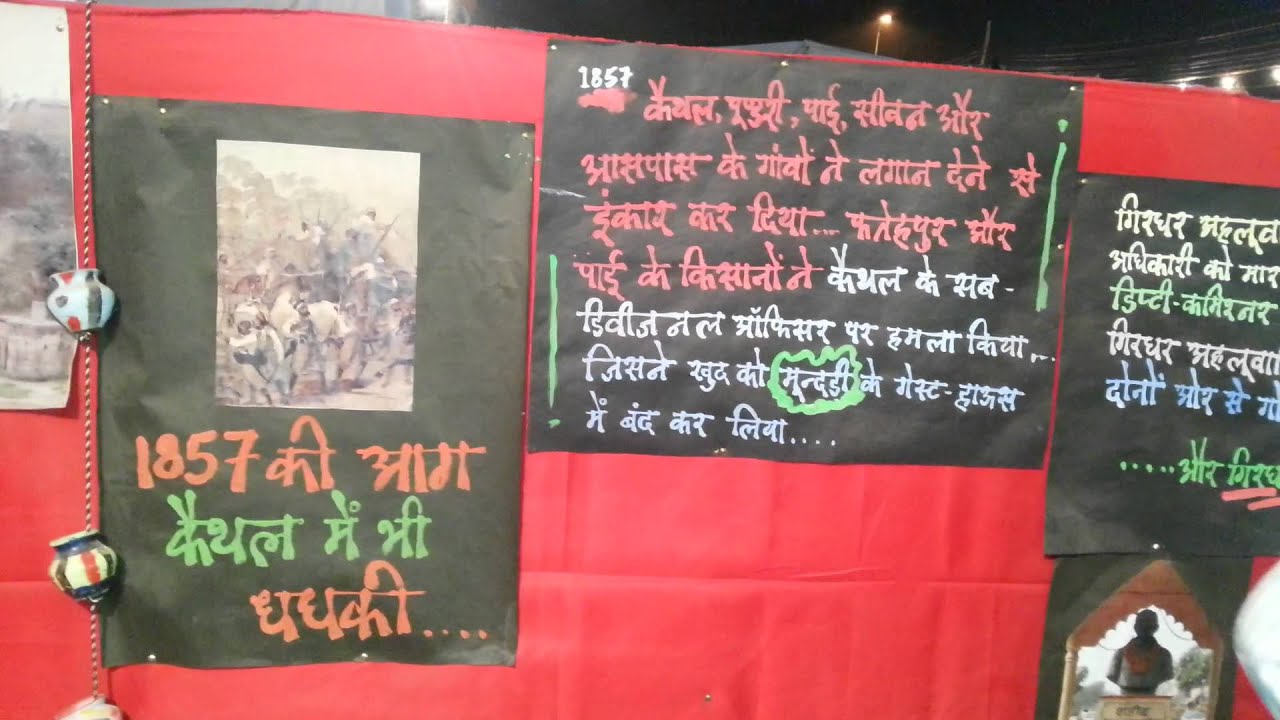 1857 की आग
कैथल में भी
धधकी....
1857
कैथल, पूण्डरी, पाई, सीवन और
आसपास के गांवों ने लगान देने से
इंकार कर दिया... फतेहपुर और
पाई के किसानों ने कैथल के सब-
डिवीजनल ऑफिसर पर हमला किया...
जिसने खुद को मून्दड़ी के गेस्ट-हाऊस
में बंद कर लिया....
गिरधर अहलूवा
अधिकारी को मार
डिप्टी-कमिश्नर
गिरधर अहलूवा
दोनों ओर से गो
.....और गिरध